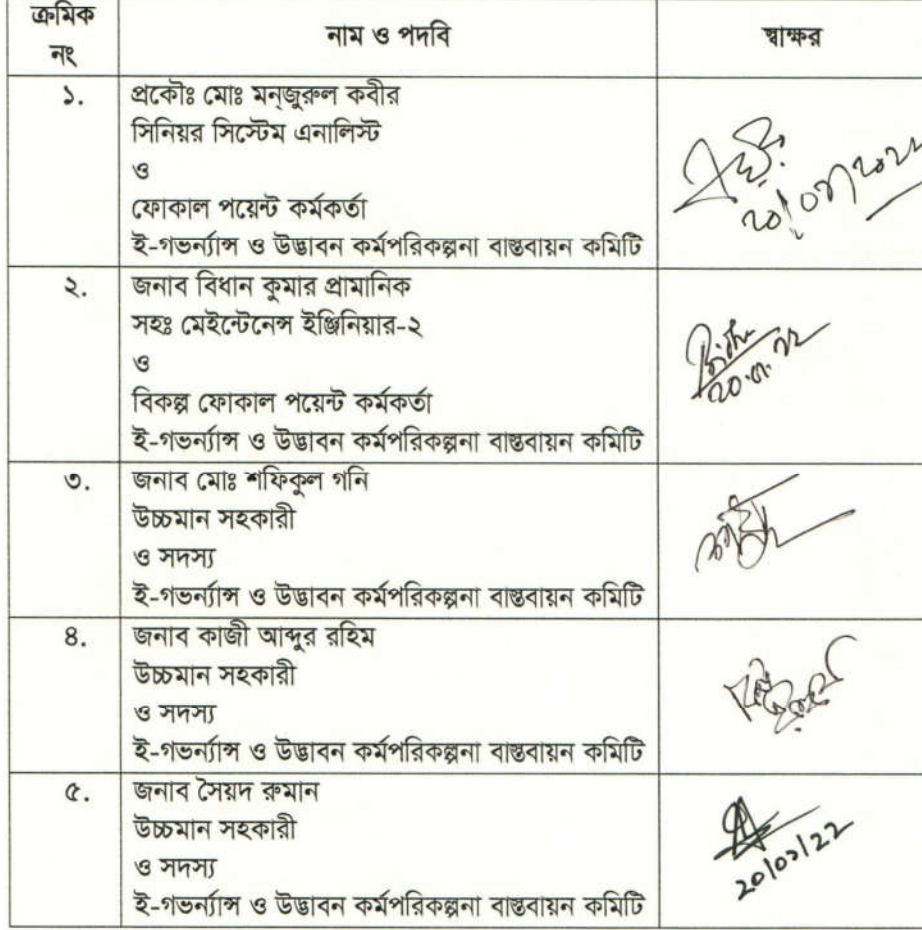 ক্রমিক নং
নাম ও পদবি
স্বাক্ষর
১.
প্রকৌঃ মোঃ মনজুরুল কবীর
সিনিয়র সিস্টেম এনালিস্ট
ও
ফোকাল পয়েন্ট কর্মকর্তা
ই-গভর্ন্যান্স ও উদ্ভাবন কর্মপরিকল্পনা বাস্তবায়ন কমিটি
২.
জনাব বিধান কুমার প্রামানিক
সহঃ মেইন্টেনেন্স ইঞ্জিনিয়ার-২
ও
বিকল্প ফোকাল পয়েন্ট কর্মকর্তা
ই-গভর্ন্যান্স ও উদ্ভাবন কর্মপরিকল্পনা বাস্তবায়ন কমিটি
৩.
জনাব মোঃ শফিকুল গনি
উচ্চমান সহকারী
ও সদস্য
ই-গভর্ন্যান্স ও উদ্ভাবন কর্মপরিকল্পনা বাস্তবায়ন কমিটি
৪.
জনাব কাজী আব্দুর রহিম
উচ্চমান সহকারী
ও সদস্য
ই-গভর্ন্যান্স ও উদ্ভাবন কর্মপরিকল্পনা বাস্তবায়ন কমিটি
৫.
জনাব সৈয়দ রুমান
উচ্চমান সহকারী
ও সদস্য
ই-গভর্ন্যান্স ও উদ্ভাবন কর্মপরিকল্পনা বাস্তবায়ন কমিটি